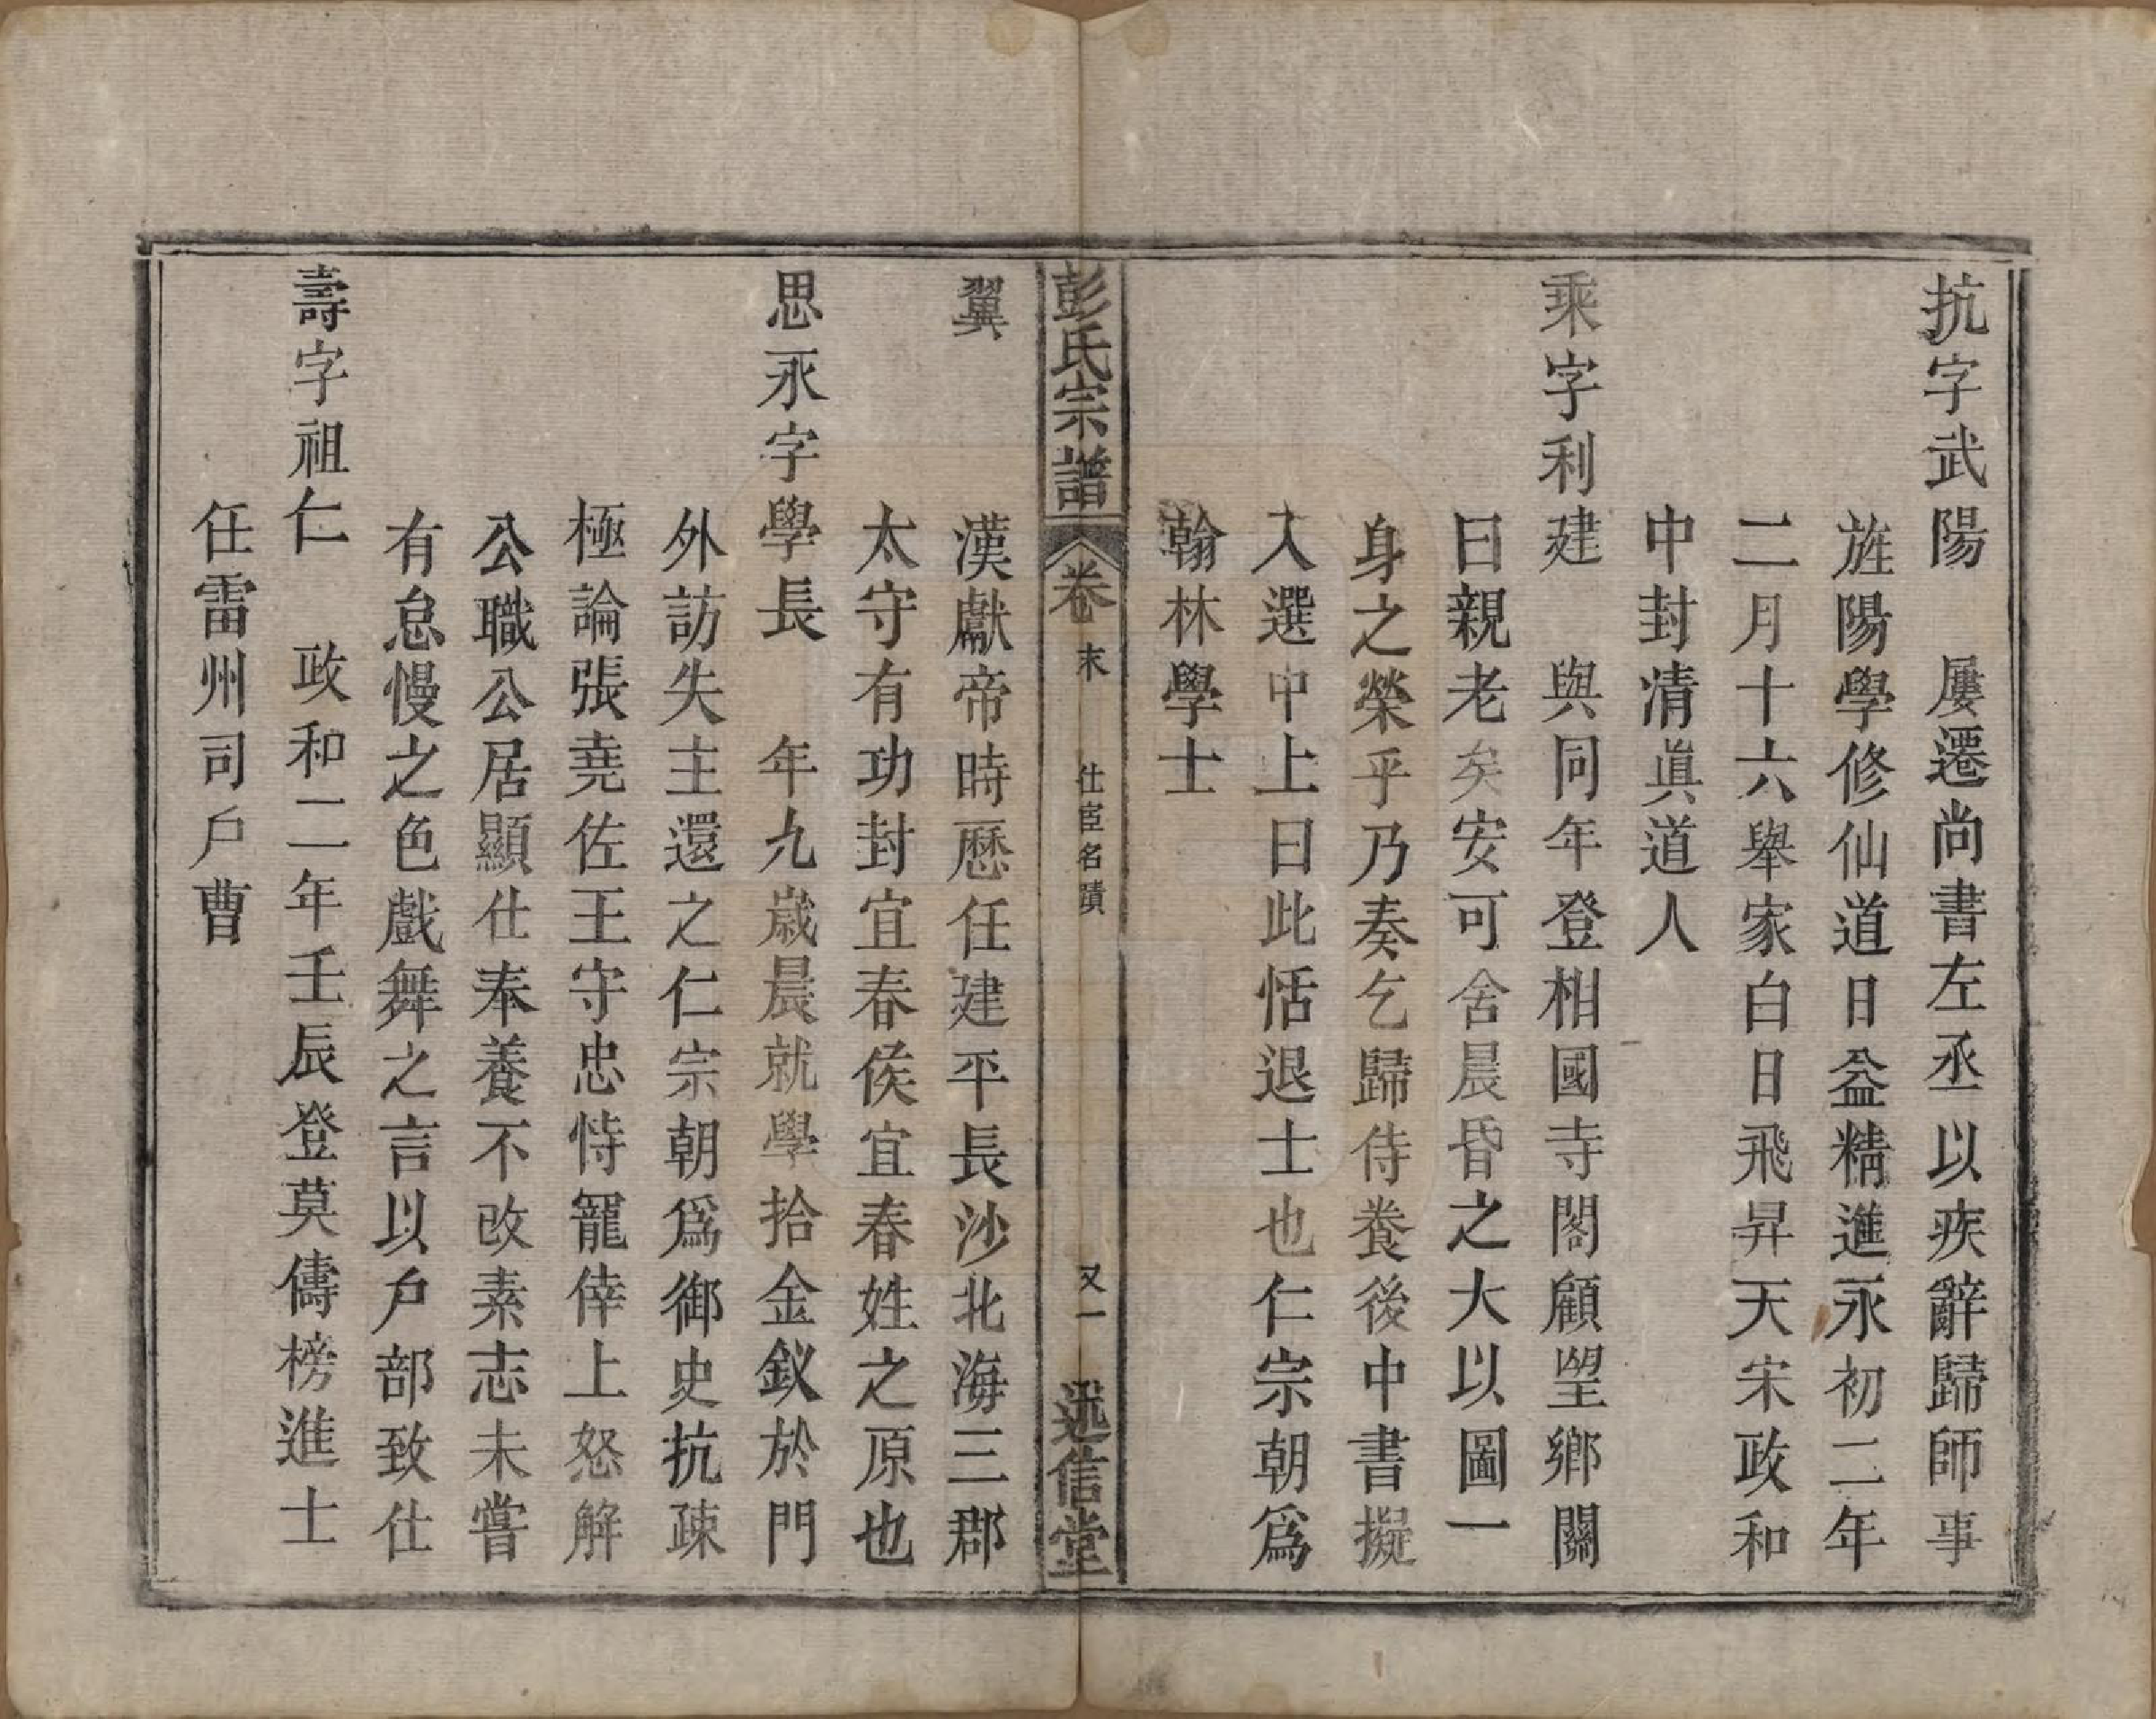 抗字武陽　屢遷尚書左丞以疾辭歸師事
旌陽學修仙道日益精進永初二年
二月十六舉家白日飛昇天宋政和
中封清眞道人
乘字利建　與同年登相國寺閣顧望鄉關
曰親老矣安可舍晨昏之大以圖一
身之榮乎乃奏乞歸侍養後中書擬
入選中上曰此恬退士也仁宗朝爲
翰林學士
彭氏宗譜　卷末　仕宦名蹟　又一　述信堂
翼　漢獻帝時歷任建平長沙北海三郡
太守有功封宜春侯宜春姓之原也
思永字學長　年九歲晨就學拾金釵於門
外訪失主還之仁宗朝爲御史抗疎
極論張堯佐王守忠恃寵倖上怒解
公職公居顯仕奉養不改素志未嘗
有怠慢之色戲舞之言以戶部致仕
壽字祖仁　政和二年壬辰登莫儔榜進士
任雷州司戶曹